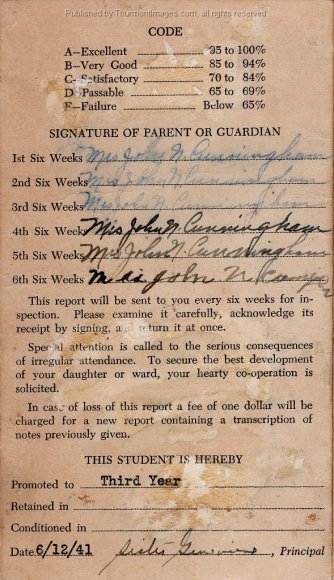 Published by ThurmontImages.com, all rights reserved.
CODE
A—Excellent 95 to 100%
B—Very Good 85 to 94%
C—Satisfactory 70 to 84%
D—Passable 65 to 69%
F—Failure Below 65%
SIGNATURE OF PARENT OR GUARDIAN
1st Six Weeks Mrs John N. Cunningham
2nd Six Weeks Mrs John N Cunningham
3rd Six Weeks Mrs John N. Cunningham
4th Six Weeks Mrs John N Cunningham
5th Six Weeks Mrs John N. Cunningham
6th Six Weeks John N.
This report will be sent to you every six weeks for in-
spection. Please examine it carefully, acknowledge its
receipt by signing, and return it at once.
Special attention is called to the serious consequences
of irregular attendance. To secure the best development
of your daughter or ward, your hearty co-operation is
solicited.
In case of loss of this report a fee of one dollar will be
charged for a new report containing a transcription of
notes previously given.
THIS STUDENT IS HEREBY
Promoted to Third Year
Retained in
Conditioned in
Date 6/12/41 Sister , Principal